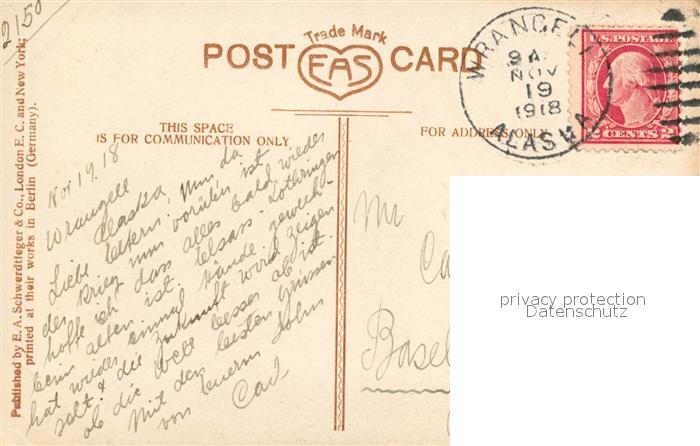 2150
Trade Mark
POST CARD
EAS
WRANGELL
9 A
NOV
19
1918
ALASKA
U.S. POSTAGE
2 CENTS 2
THIS SPACE
IS FOR COMMUNICATION ONLY
FOR ADDRESS ONLY
Published by E. A. Schwerdtfeger & Co., London E. C. and New York,
printed at their works in Berlin (Germany).
Nov 19. 18
Wrangell
Alaska,
Liebe Eltern; Nun da
der Krieg nun vorüber ist
hoffe ich dass alles bald wieder
beim alten ist. Elsass-Lothringen
hat wieder einmal Hände gewech-
selt & die Zukunft wird zeigen
ob die Welt besser ab ist.
Mit den besten Grüssen
von Eurem Sohn
Carl
Mr
Ca
Basel
privacy protection
Datenschutz